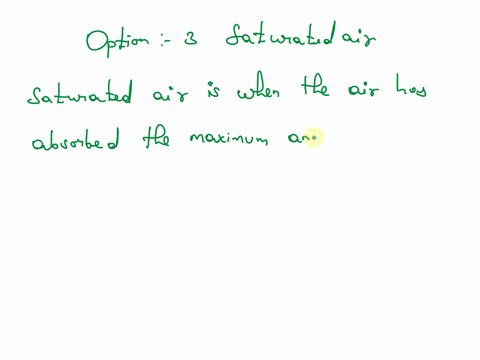 Option :- 3 Saturated air
Saturated air is when the air has
absorbed the maximum am